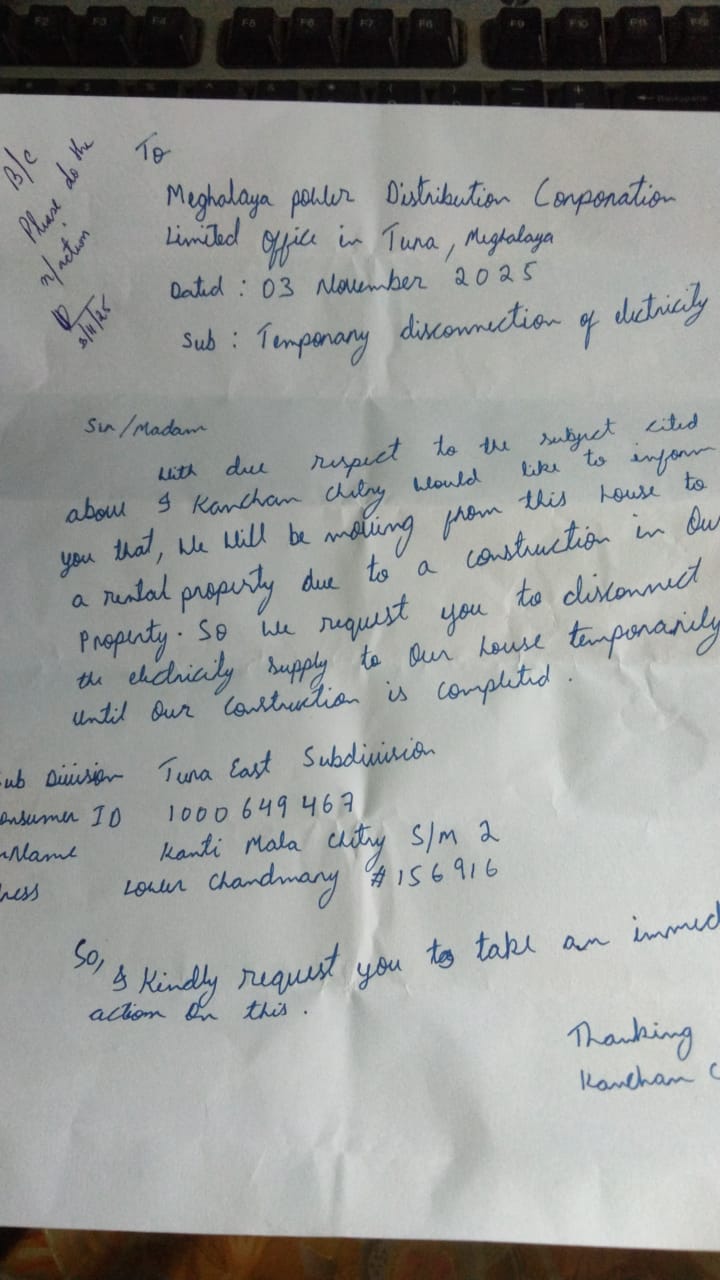 B/C
Please do the
n/action
3/11/25
To
Meghalaya power Distribution Corporation
Limited Office in Tura, Meghalaya
Dated : 03 November 2025
Sub : Temporary disconnection of electricity
Sir/Madam
With due respect to the subject cited
above I Kanchan Chetry would like to inform
you that, We Will be moving from this house to
a rental property due to a construction in Our
Property. So we request you to disconnect
the electricity supply to Our house temporarily
until Our construction is completed.
ub Division Tura East Subdivision
onsumer ID 1000649467
Name Kanti Mala Chetry S/M 2
ress Lower Chandmary #156916
So, I Kindly request you to take an immed
action On this.
Thanking
Kanchan C